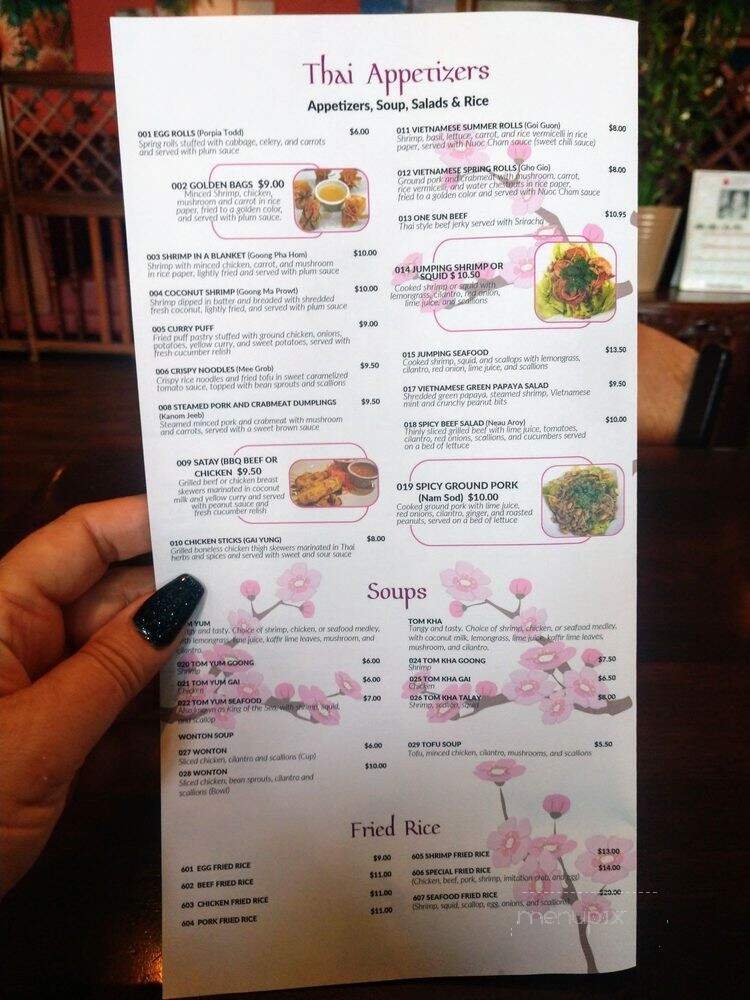 Thai Appetizers
Appetizers, Soup, Salads & Rice
001 EGG ROLLS (Porpia Todd) $6.00
Spring rolls stuffed with cabbage, celery, and carrots
and served with plum sauce
002 GOLDEN BAGS $9.00
Minced Shrimp, chicken,
mushroom and carrot in rice
paper, fried to a golden color,
and served with plum sauce.
003 SHRIMP IN A BLANKET (Goong Pha Hom) $10.00
Shrimp with minced chicken, carrot, and mushroom
in rice paper, lightly fried and served with plum sauce
004 COCONUT SHRIMP (Goong Ma Prowt) $10.00
Shrimp dipped in batter and breaded with shredded
fresh coconut, lightly fried, and served with plum sauce
005 CURRY PUFF $9.00
Fried puff pastry stuffed with ground chicken, onions,
potatoes, yellow curry, and sweet potatoes, served with
fresh cucumber relish
006 CRISPY NOODLES (Mee Grob) $9.50
Crispy rice noodles and fried tofu in sweet caramelized
tomato sauce, topped with bean sprouts and scallions
008 STEAMED PORK AND CRABMEAT DUMPLINGS $9.50
(Kanom Jeeb)
Steamed minced pork and crabmeat with mushroom
and carrots, served with a sweet brown sauce
009 SATAY (BBQ BEEF OR
CHICKEN $9.50
Grilled beef or chicken breast
skewers marinated in coconut
milk and yellow curry and served
with peanut sauce and
fresh cucumber relish
010 CHICKEN STICKS (GAI YUNG) $8.00
Grilled boneless chicken thigh skewers marinated in Thai
herbs and spices and served with sweet and sour sauce
011 VIETNAMESE SUMMER ROLLS (Goi Guon) $8.00
Shrimp, basil, lettuce, carrot, and rice vermicelli in rice
paper, served with Nuoc Cham sauce (sweet chili sauce)
012 VIETNAMESE SPRING ROLLS (Gho Gio) $8.00
Ground pork and crabmeat with mushroom, carrot,
rice vermicelli, and water chestnuts in rice paper,
fried to a golden color and served with Nuoc Cham sauce
013 ONE SUN BEEF $10.95
Thai style beef jerky served with Sriracha
014 JUMPING SHRIMP OR
SQUID $ 10.50
Cooked shrimp or squid with
lemongrass, cilantro, red onion,
lime juice, and scallions
015 JUMPING SEAFOOD $13.50
Cooked shrimp, squid, and scallops with lemongrass,
cilantro, red onion, lime juice, and scallions
017 VIETNAMESE GREEN PAPAYA SALAD $9.50
Shredded green papaya, steamed shrimp, Vietnamese
mint and crunchy peanut bits
018 SPICY BEEF SALAD (Neau Aroy) $10.00
Thinly sliced grilled beef with lime juice, tomatoes,
cilantro, red onions, scallions, and cucumbers served
on a bed of lettuce
019 SPICY GROUND PORK
(Nam Sod) $10.00
Cooked ground pork with lime juice,
red onions, cilantro, ginger, and roasted
peanuts, served on a bed of lettuce
Soups
YUM
and tasty. Choice of shrimp, chicken, or seafood medley,
with lemongrass, lime juice, kaffir lime leaves, mushroom, and
cilantro.
020 TOM YUM GOONG $6.00
Shrimp
021 TOM YUM GAI $6.00
Chicken
022 TOM YUM SEAFOOD $7.00
Also known as King of the Sea, with shrimp, squid,
and scallop
WONTON SOUP
027 WONTON $6.00
Sliced chicken, cilantro and scallions (Cup)
028 WONTON $10.00
Sliced chicken, bean sprouts, cilantro and
scallions (Bowl)
TOM KHA
Tangy and tasty. Choice of shrimp, chicken, or seafood medley,
with coconut milk, lemongrass, lime juice, kaffir lime leaves,
mushroom, and cilantro.
024 TOM KHA GOONG $7.50
Shrimp
025 TOM KHA GAI $6.50
Chicken
026 TOM KHA TALAY $8.00
Shrimp, scallop, squid
029 TOFU SOUP $5.50
Tofu, minced chicken, cilantro, mushrooms, and scallions
Fried Rice
601 EGG FRIED RICE $9.00
602 BEEF FRIED RICE $11.00
603 CHICKEN FRIED RICE $11.00
604 PORK FRIED RICE $11.00
605 SHRIMP FRIED RICE $13.00
606 SPECIAL FRIED RICE $14.00
(Chicken, beef, pork, shrimp, imitation crab, and egg)
607 SEAFOOD FRIED RICE $20.00
(Shrimp, squid, scallop, egg, onions, and scallions)
menupix